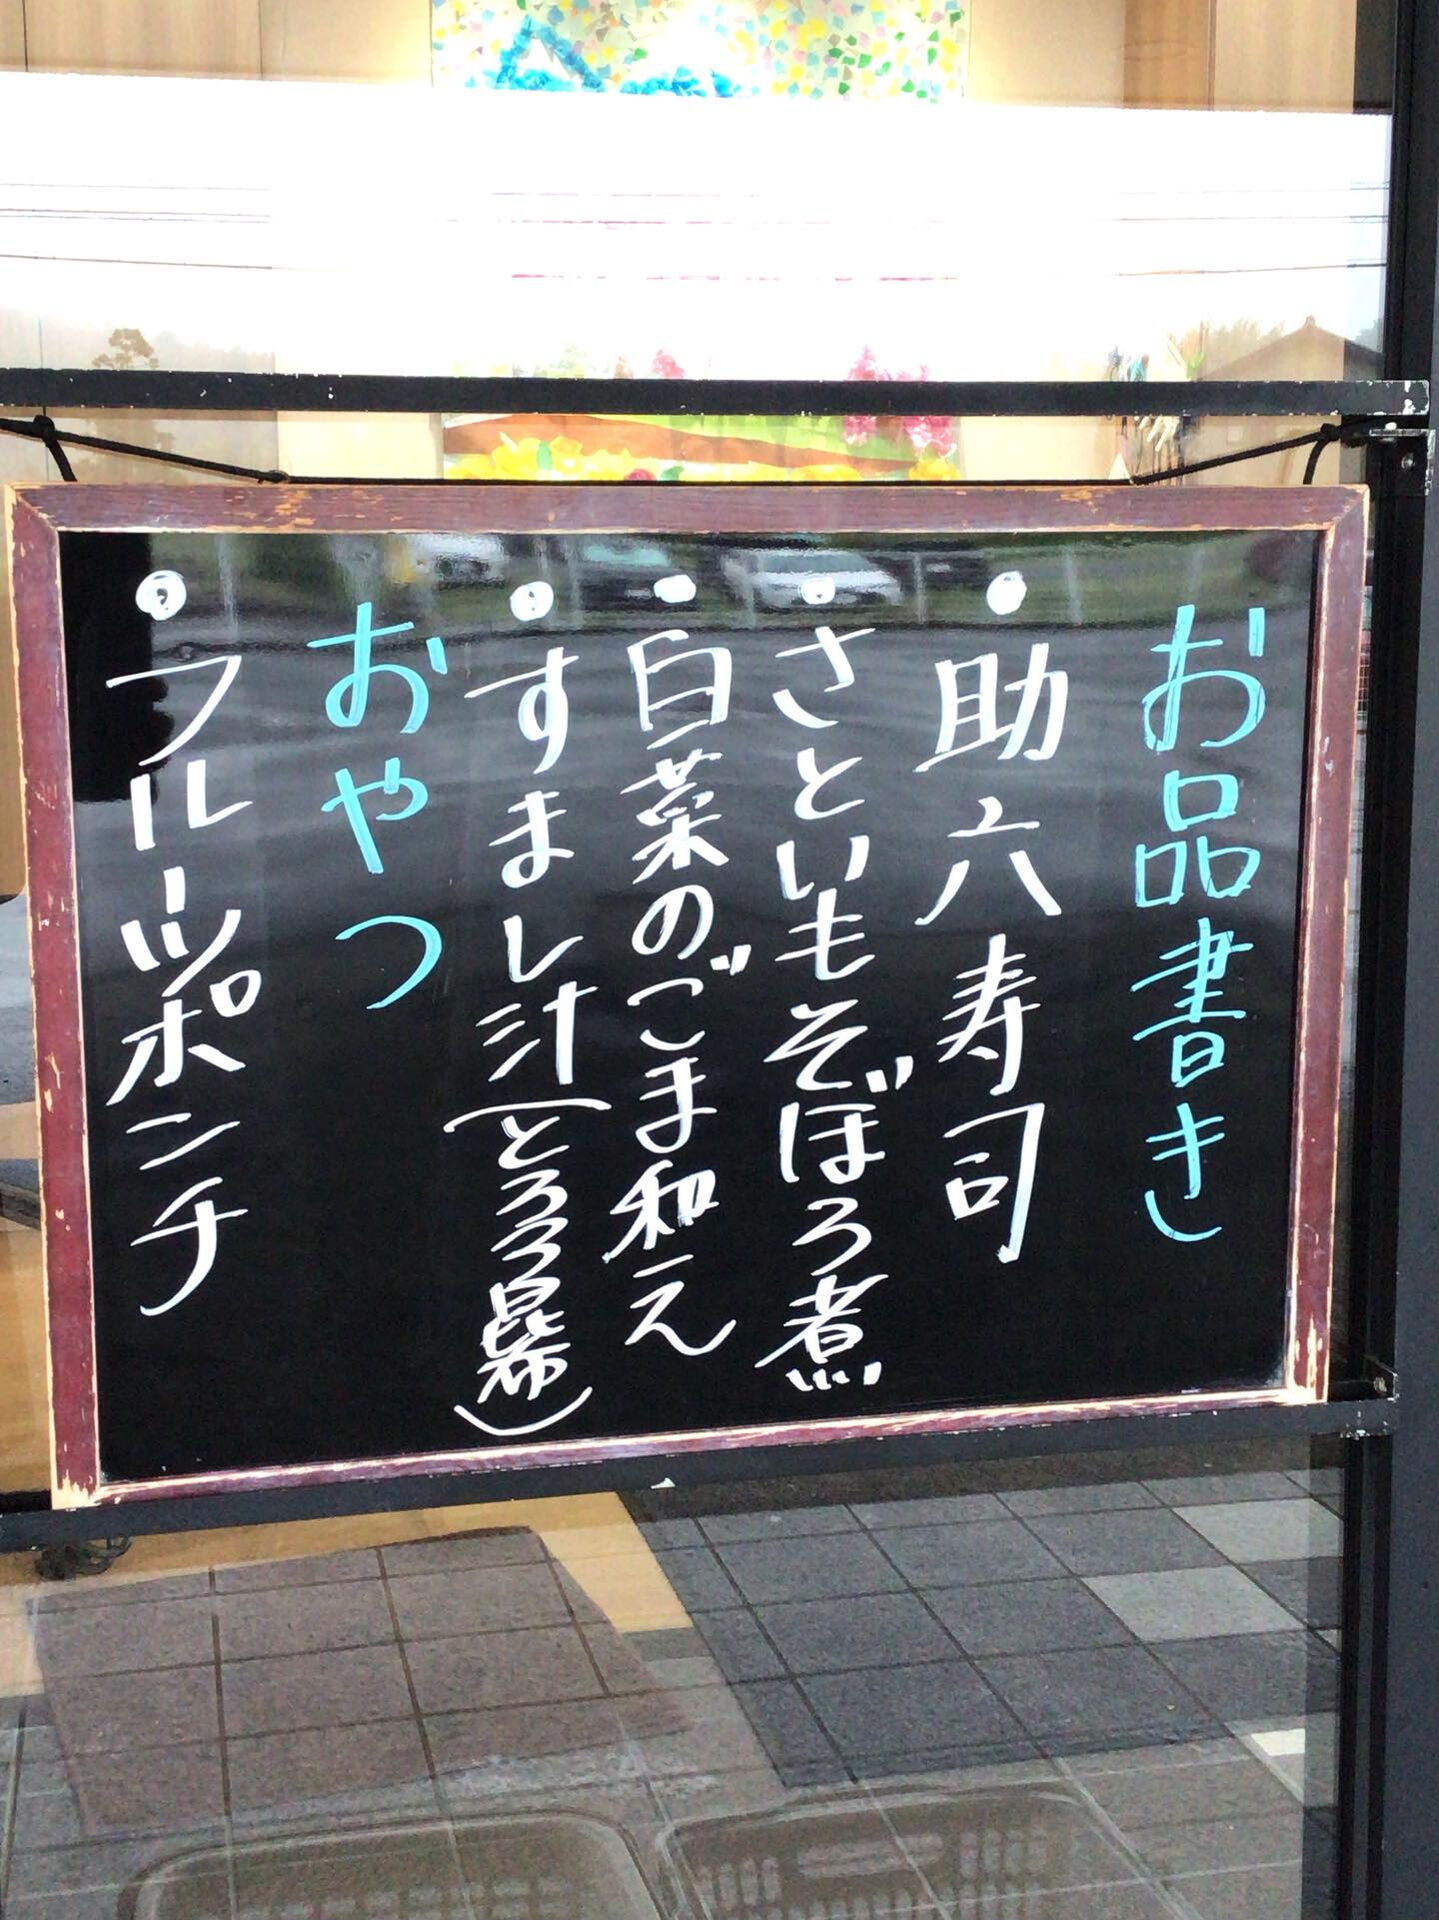 お品書き
助六寿司
さといもそぼろ煮
白菜のごま和え
すまし汁(とろろ昆布)
おやつ
フルーツポンチ